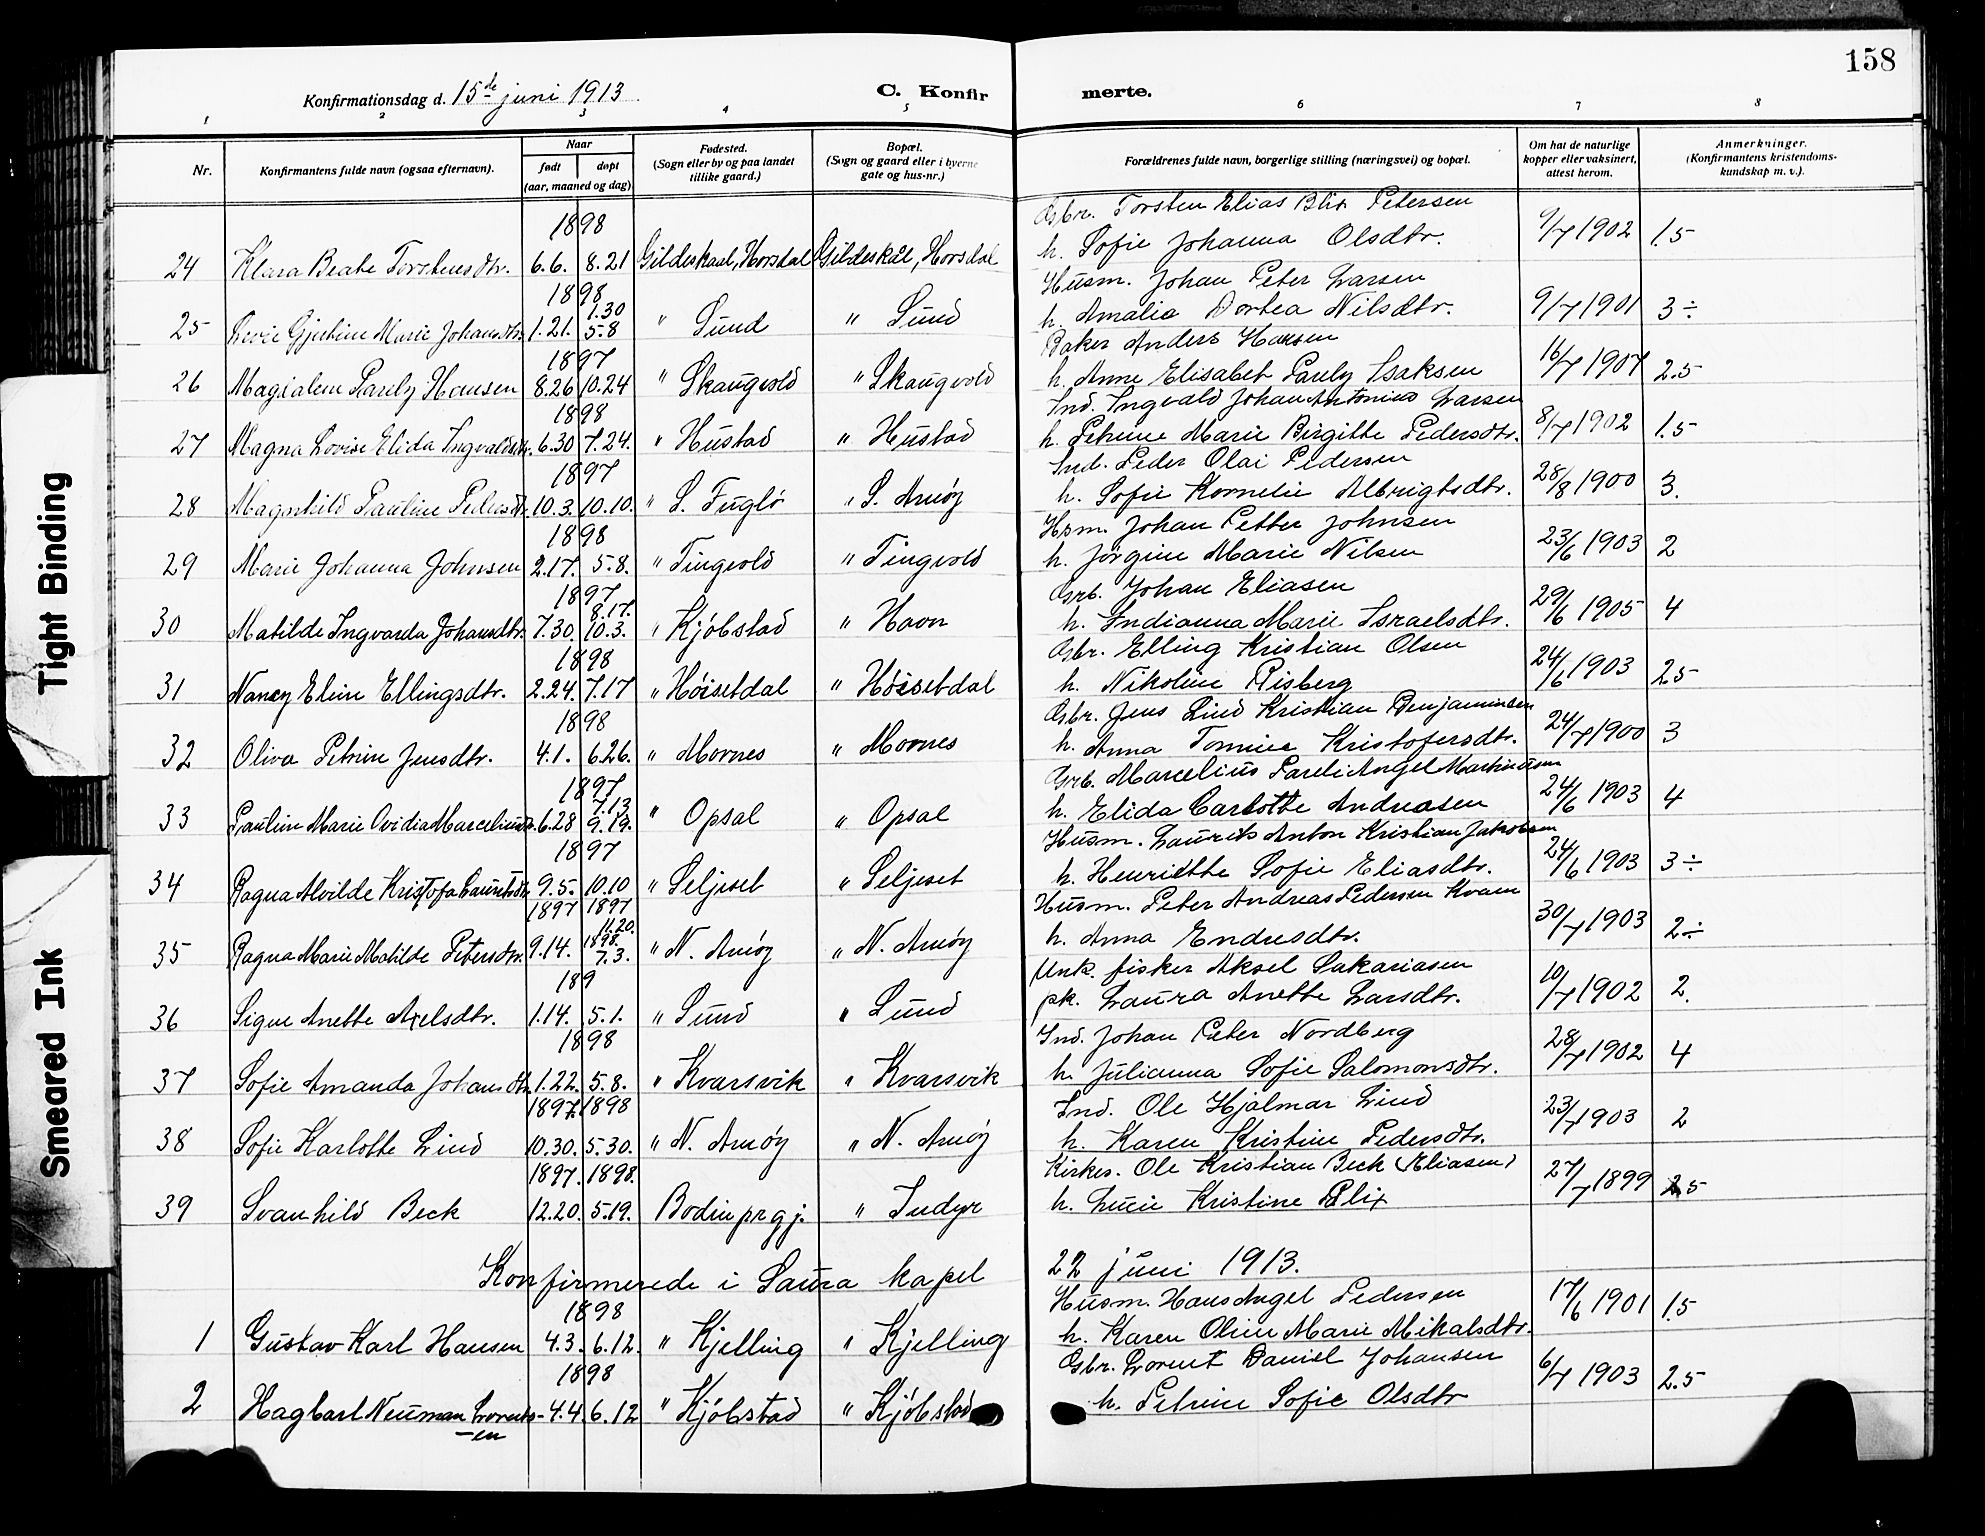 158
Konfirmationsdag d. 15de juni 1913.
C. Konfirmerte.
1 2 3 4 5 6 7 8
Nr.
Konfirmantens fulde navn (ogsaa efternavn).
Naar
født døpt
(aar, maaned og dag)
Fødested.
(Sogn eller by og paa landet
tillike gaard.)
Bopæl.
(Sogn og gaard eller i byerne
gate og hus-nr.)
Forældrenes fulde navn, borgerlige stilling (næringsvei) og bopæl.
Om hat de naturlige
kopper eller vaksinert,
attest herom.
Anmerkninger.
(Konfirmantens kristendoms-
kundskap m. v.).
1898 Gsbr. Torsten Elias Blix Petersen
24 Klara Beate Torstensdtr. 6.6. 8.21 Gildeskaal, Horsdal Gildeskål, Horsdal h. Sofie Johanna Olsdtr. 9/7 1902 1.5
1898 1.30 Husm. Johan Peter Larsen
25 Gjertine Marie Johansdtr. 1.21. 5.8 " Sund " Sund h. Amalie Dortea Nilsdtr. 9/7 1901 3 ÷
1897 Baker Anders Hansen
26 Magdalena Parely Hansen 8.26 10.24 " Skaugvold " Skaugvold h. Anne Elisabet Parely Isaksen 16/7 1907 2.5
1898 Ind. Ingvald Johan Antonius Larsen
27 Magna Lovise Elida Ingvaldsdtr. 6.30 7.24. " Hustad " Hustad h. Petrine Marie Birgitte Pedersdtr. 8/7 1902 1.5
1897 Ind. Peder Olai Pedersen
28 Magnhild Pauline Pedersdtr. 10.3. 10.10. " S. Fuglø " S. Arnøy h. Sofie Kornelie Albrigtsdtr. 28/8 1900 3.
1898 Hsm. Johan Petter Johnsen
29 Marie Johanna Johnsen 2.17. 5.8. " Tingvold " Tingvold h. Jørgine Marie Nilsen 23/6 1903 2
1897 8.17. Grb. Johan Eliasen
30 Matilde Ingvarda Johansdtr. 7.30. 10.3. " Kjøbstad " Havn h. Indianna Marie Israelsdtr. 29/6 1905 4
1898 Gsbr. Elling Kristian Olsen
31 Nancy Eline Ellingsdtr. 2.24. 7.17 " Høisetdal " Høisetdal h. Nikoline Risberg 24/6 1903 2.5
1898 Gsbr. Jens Lind Kristian Benjaminsen
32 Oliva Petrine Jensdtr. 4.1. 6.26. " Mornes " Mornes h. Anna Tomine Kristofersdtr. 24/7 1900 3
1897 7.13 Grb. Marcelius Pareli Angel Martinussen
33 Pauline Marie Ovidia Marceliusdtr. 6.28 9.19. " Opsal " Opsal h. Elida Carlotte Andreasen 24/6 1903 4
1897 Husm. Laurits Anton Kristian Jakobsen
34 Ragna Alvilde Kristofa Lauritsdtr. 9.5. 10.10 " Seljeset " Seljeset h. Henriette Sofie Eliasdtr. 24/6 1903 3 ÷
1897 1897 11.20. 1898. Husm. Peter Andreas Pedersen Kvaen
35 Ragna Marie Matilde Petersdtr. 9.14. 7.3. " N. Arnøy " N. Arnøy h. Anna Endresdtr. 30/7 1903 2 ÷
189 Unk. fisker Aksel Sakariasen
36 Signe Anette Axelsdtr. 1.14. 5.1. " Sund " Sund pk. Laura Anette Larsdtr. 10/7 1902 2.
1898 Ind. Johan Peter Nordberg
37 Sofie Amanda Johansdtr. 1.22. 5.8. " Kvarsvik " Kvarsvik h. Julianna Sofie Salomonsdtr. 28/7 1902 4
1897. 1898 Ind. Ole Hjalmar Lind
38 Sofie Karlotte Lind 10.30. 5.30. " N. Arnøy " N. Arnøy h. Karen Kristine Pedersdtr. 23/7 1903 2
1897. 1898. Kirkes. Ole Kristian Beck (Eliasen)
39 Svanhild Beck 12.20. 5.19. Bodin prgj. " Indyr h. Lucie Kristine Blix 27/7 1899 2.5
Konfirmerede i Saura kapel 22 juni 1913.
1898 Husm. Hans Angel Pedersen
1 Gustav Karl Hansen 4.3. 6.12. " Kjelling " Kjelling h. Karen Oline Marie Mikalsdtr. 17/6 1901 1.5
1898 Gsbr. Lorent Daniel Johansen
2 Hagbart Neuman Lorents- 4.4. 6.12 " Kjøbstad " Kjøbstad h. Petrine Sofie Olsdtr 6/7 1903 2.5
-en
Tight Binding
Smeared Ink